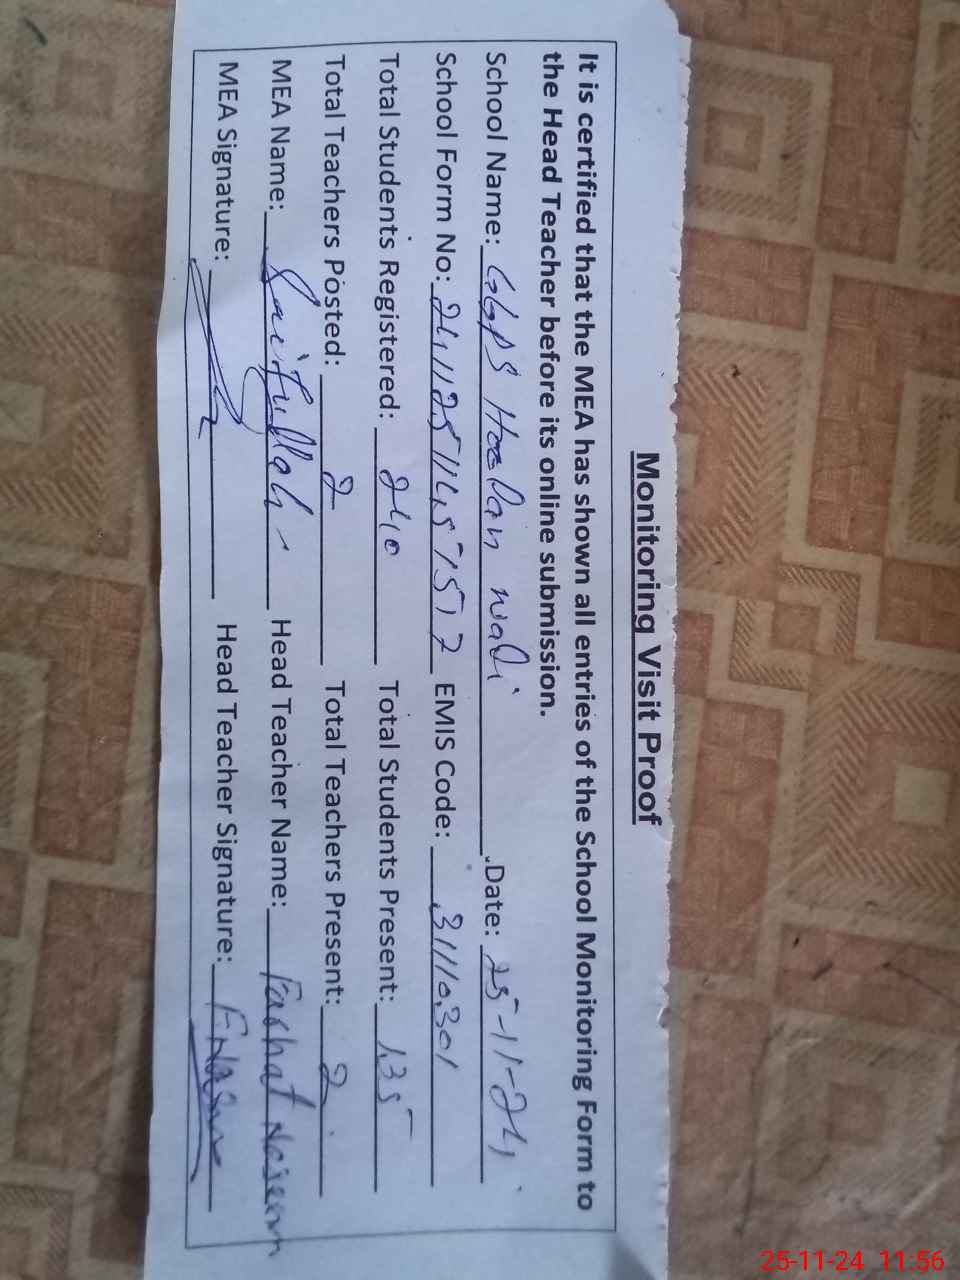 Monitoring Visit Proof
It is certified that the MEA has shown all entries of the School Monitoring Form to
the Head Teacher before its online submission.
School Name: GGPS Hoodan wali Date: 25-11-24
School Form No: EMIS Code: 31110301
Total Students Registered: 240 Total Students Present: 135
Total Teachers Posted: 2 Total Teachers Present: 2
MEA Name: Saifullah Head Teacher Name: Farhat Naseem
MEA Signature: Head Teacher Signature:
25-11-24 11:56